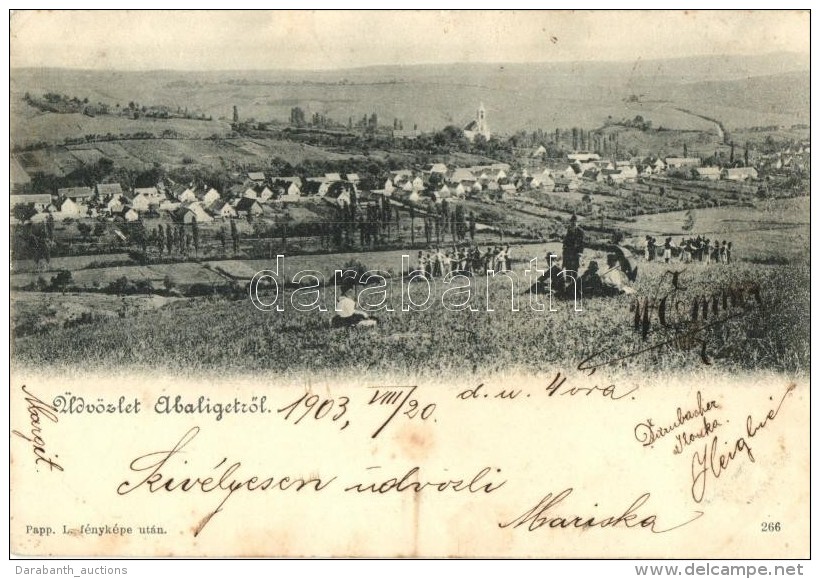 darabanth.com
Emma
Üdvözlet Abaligetről. 1903, VIII/20. d.u. 4 óra
Margit
Ilonka.
Szivélyesen üdvözli
Mariska
Papp. L. fényképe után.
266
Darabanth_auctions
www.delcampe.net